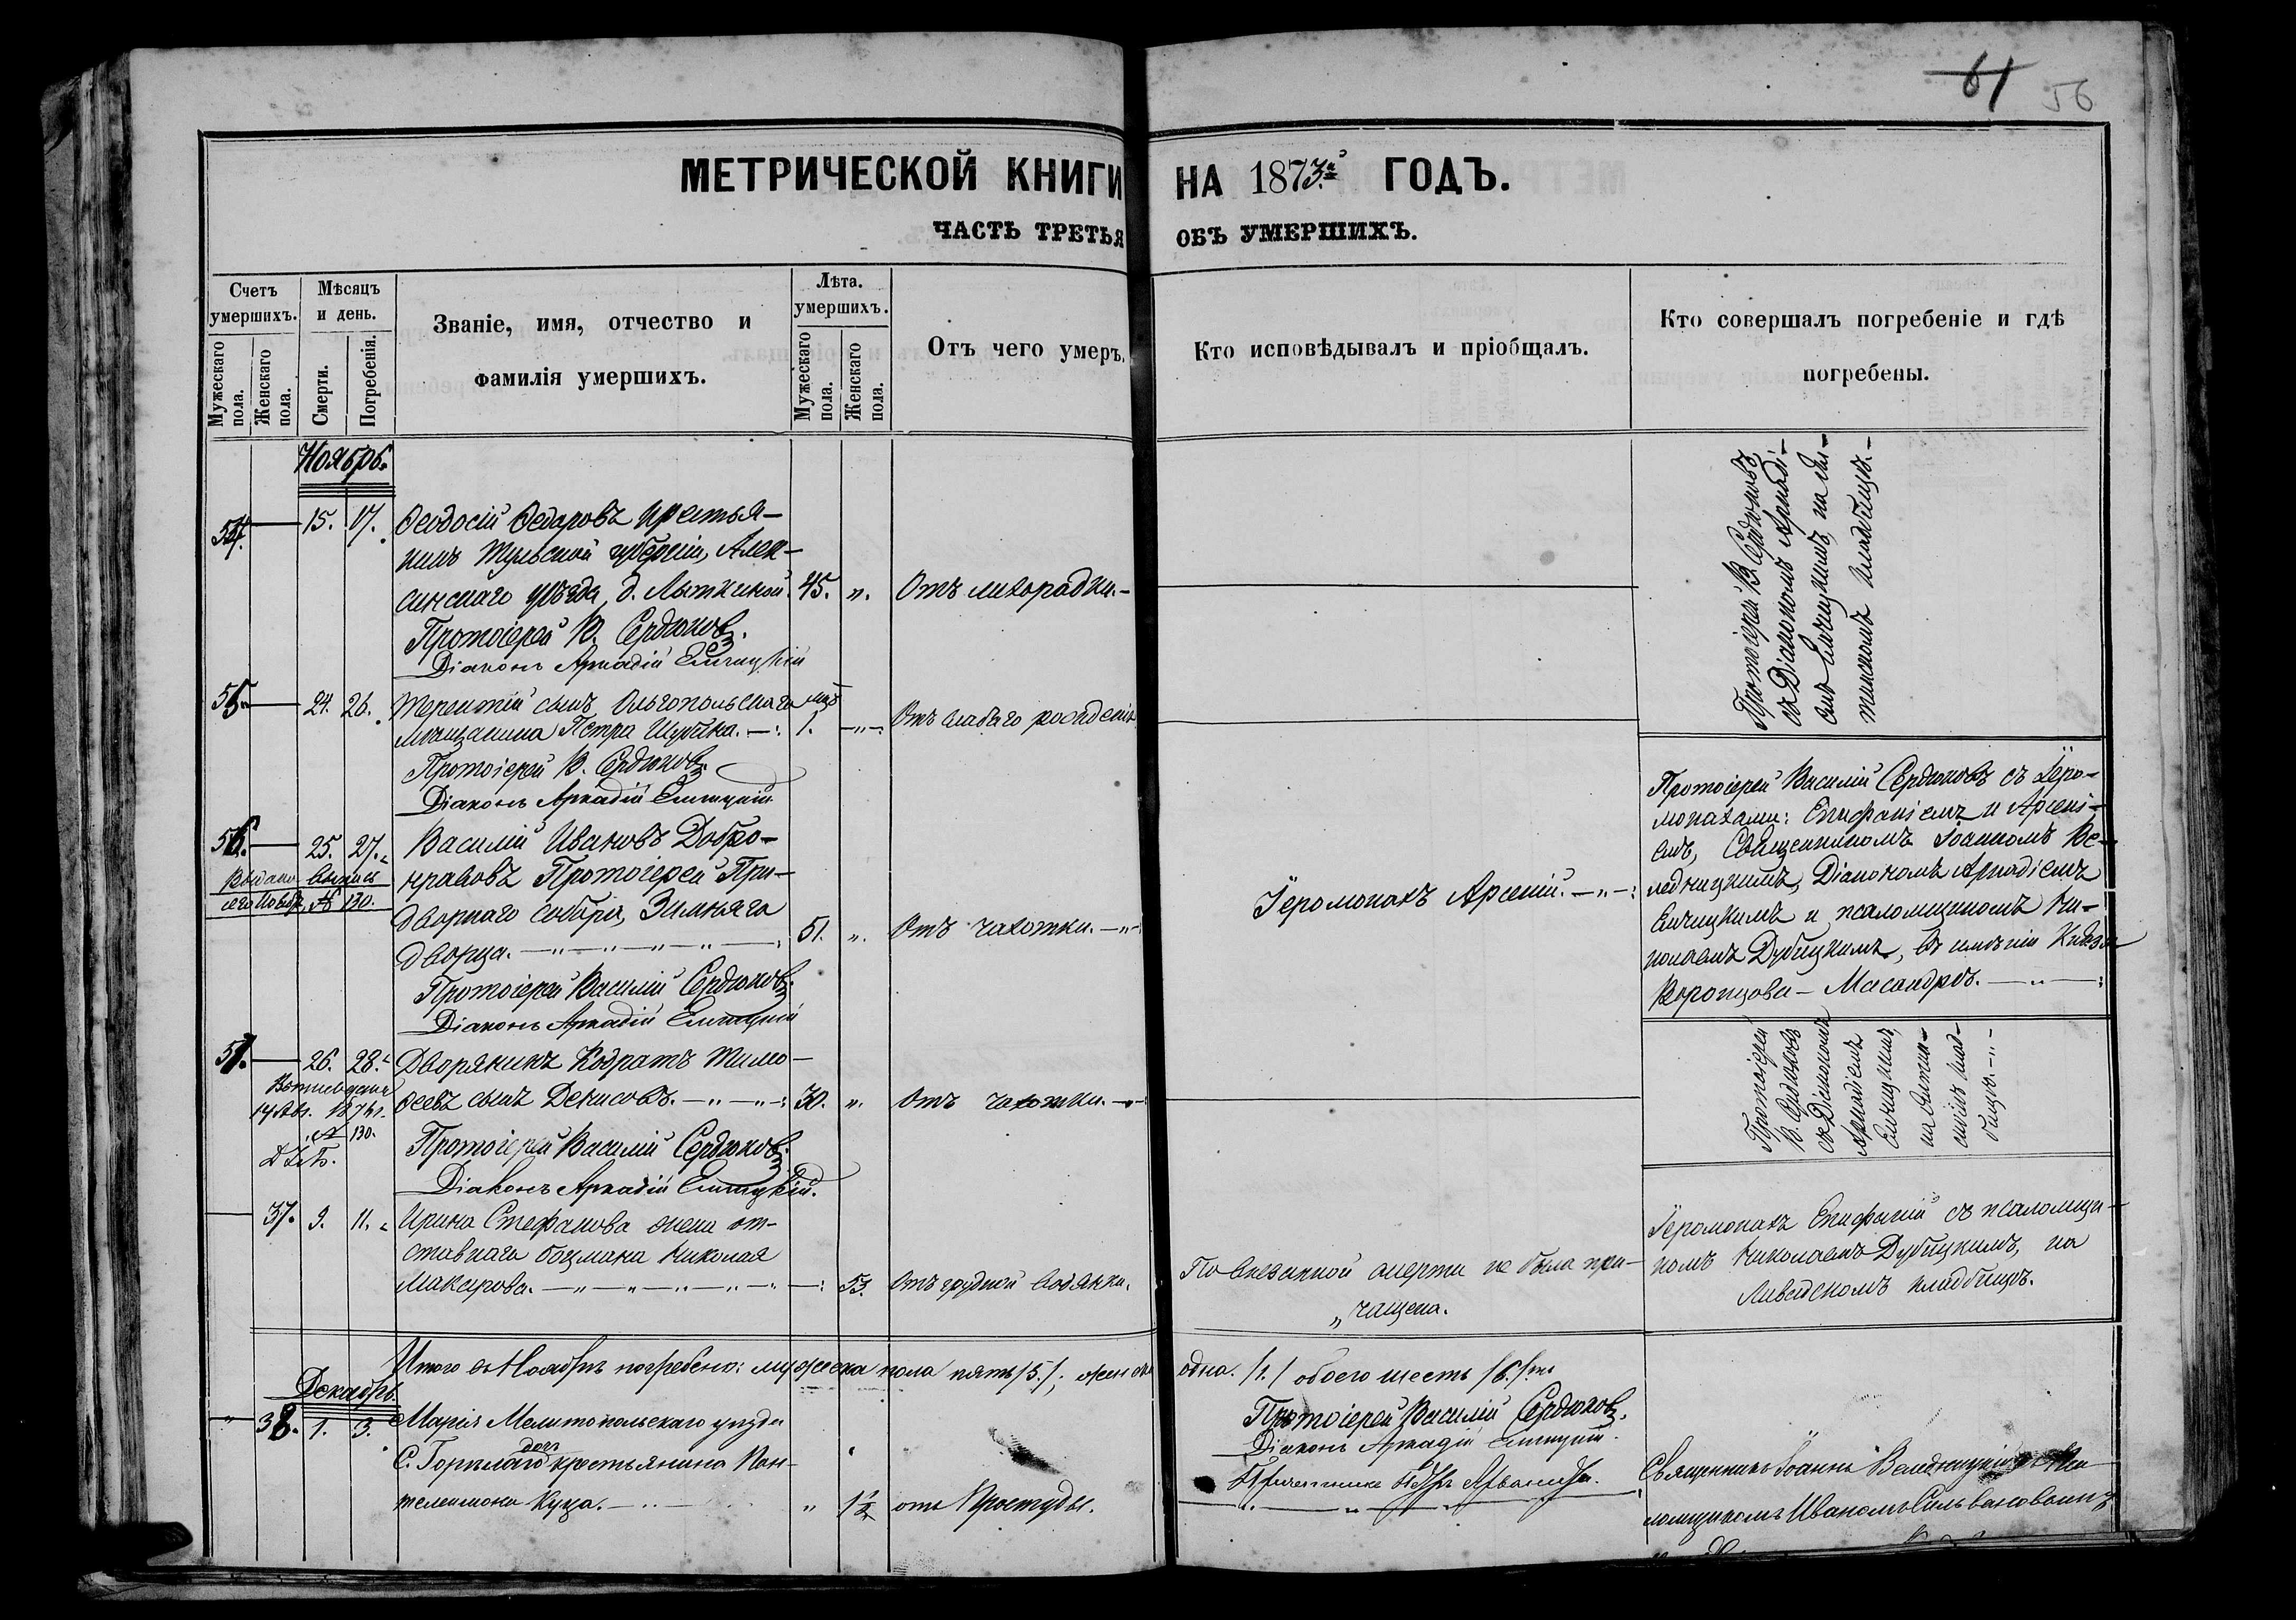 61 56
МЕТРИЧЕСКОЙ КНИГИ НА 1873й ГОДЪ.
ЧАСТЬ ТРЕТЬЯ ОБЪ УМЕРШИХЪ.
Счетъ умершихъ.
Мужескаго пола.
Женскаго пола.
Мѣсяцъ и день.
Смерти.
Погребенія.
Званіе, имя, отчество и
фамилія умершихъ.
Лѣта.
умершихъ.
Мужескаго пола.
Женскаго пола.
Отъ чего умеръ.
Кто исповѣдывалъ и пріобщалъ.
Кто совершалъ погребеніе и гдѣ
погребены.
Ноябрь.
54. 15. 17. Ѳеодосій Ѳедоровъ крестья-
нинъ Тульской губерніи, Алек-
синскаго уѣзда, д. Лыткиной. 45. „. Отъ лихорадки.-
Протоіерей В. Сердюковъ.
Діаконъ Аркадій Ентицкій
Протоіерей В. Сердюковъ
съ Діакономъ Аркаді-
емъ
кладбищѣ.-
55. 24. 26. Терентій сынъ Ольгопольскаго мѣс
мѣщанина Петра Шубака.-: 1. -„-: Отъ слабаго рожденія
Протоіерей В. Сердюковъ.
Діаконъ Аркадій Ентицкій
56. 25. 27. Василій Ивановъ Добро-
нравовъ Протоіерей При-
дворнаго собора, Зимняго
дворца. 51. „. Отъ чахотки.-„-
№ 130.
Протоіерей Василій Сердюковъ.
Діаконъ Аркадій Ентицкій
Іеромонахъ Арсеній.-„-:
Протоіерей Василій Сердюковъ съ Іеро-
монахами: Епифаніемъ и Арсені-
емъ, Священникомъ Іоанномъ Ве-
ледницкимъ, Діакономъ Аркадіемъ
Ентицкимъ и псаломщикомъ Ни-
колаемъ Дубицкимъ, въ имѣніи Князя
Воронцова- Масандрѣ.-„-:
57. 26. 28. Дворянинъ Кодратъ Тимо-
ѳеевъ сынъ Денисовъ.-„-„-: 30. „. Отъ чахотки.-„-:
130.
Протоіерей Василій Сердюковъ.
Діаконъ Аркадій Ентицкій.
Протоіерей
В. Сердюковъ
съ Діакономъ
Аркадіемъ
Ентицкимъ,
клад-
бищѣ.-„-
37. 9. 11. Ирина Стефанова жена от-
ставнаго боцмана Николая
Макарова. 53. Отъ грудной водянки.
По внезапной смерти не была при-
„чащена.
Іеромонахъ Епифаній съ псаломщи-
комъ Николаемъ Дубицкимъ, на
Ливадскомъ кладбищѣ.
Итого въ Ноябрѣ погребено: мужеска пола пять /5./; женска одна. /1./ обоего шесть /6./
Протоіерей Василій Сердюковъ.
Діаконъ Аркадій Ентицкій.
Декабрь
„ 38. 1. 3. Марія Мелитопольскаго уѣзда
С. Горѣлаго дочь крестьянина Пан-
телеимона Куца. „ 1½ отъ Простуды.
Священникъ Іоаннъ Веледницкій
ломщикомъ Иваномъ